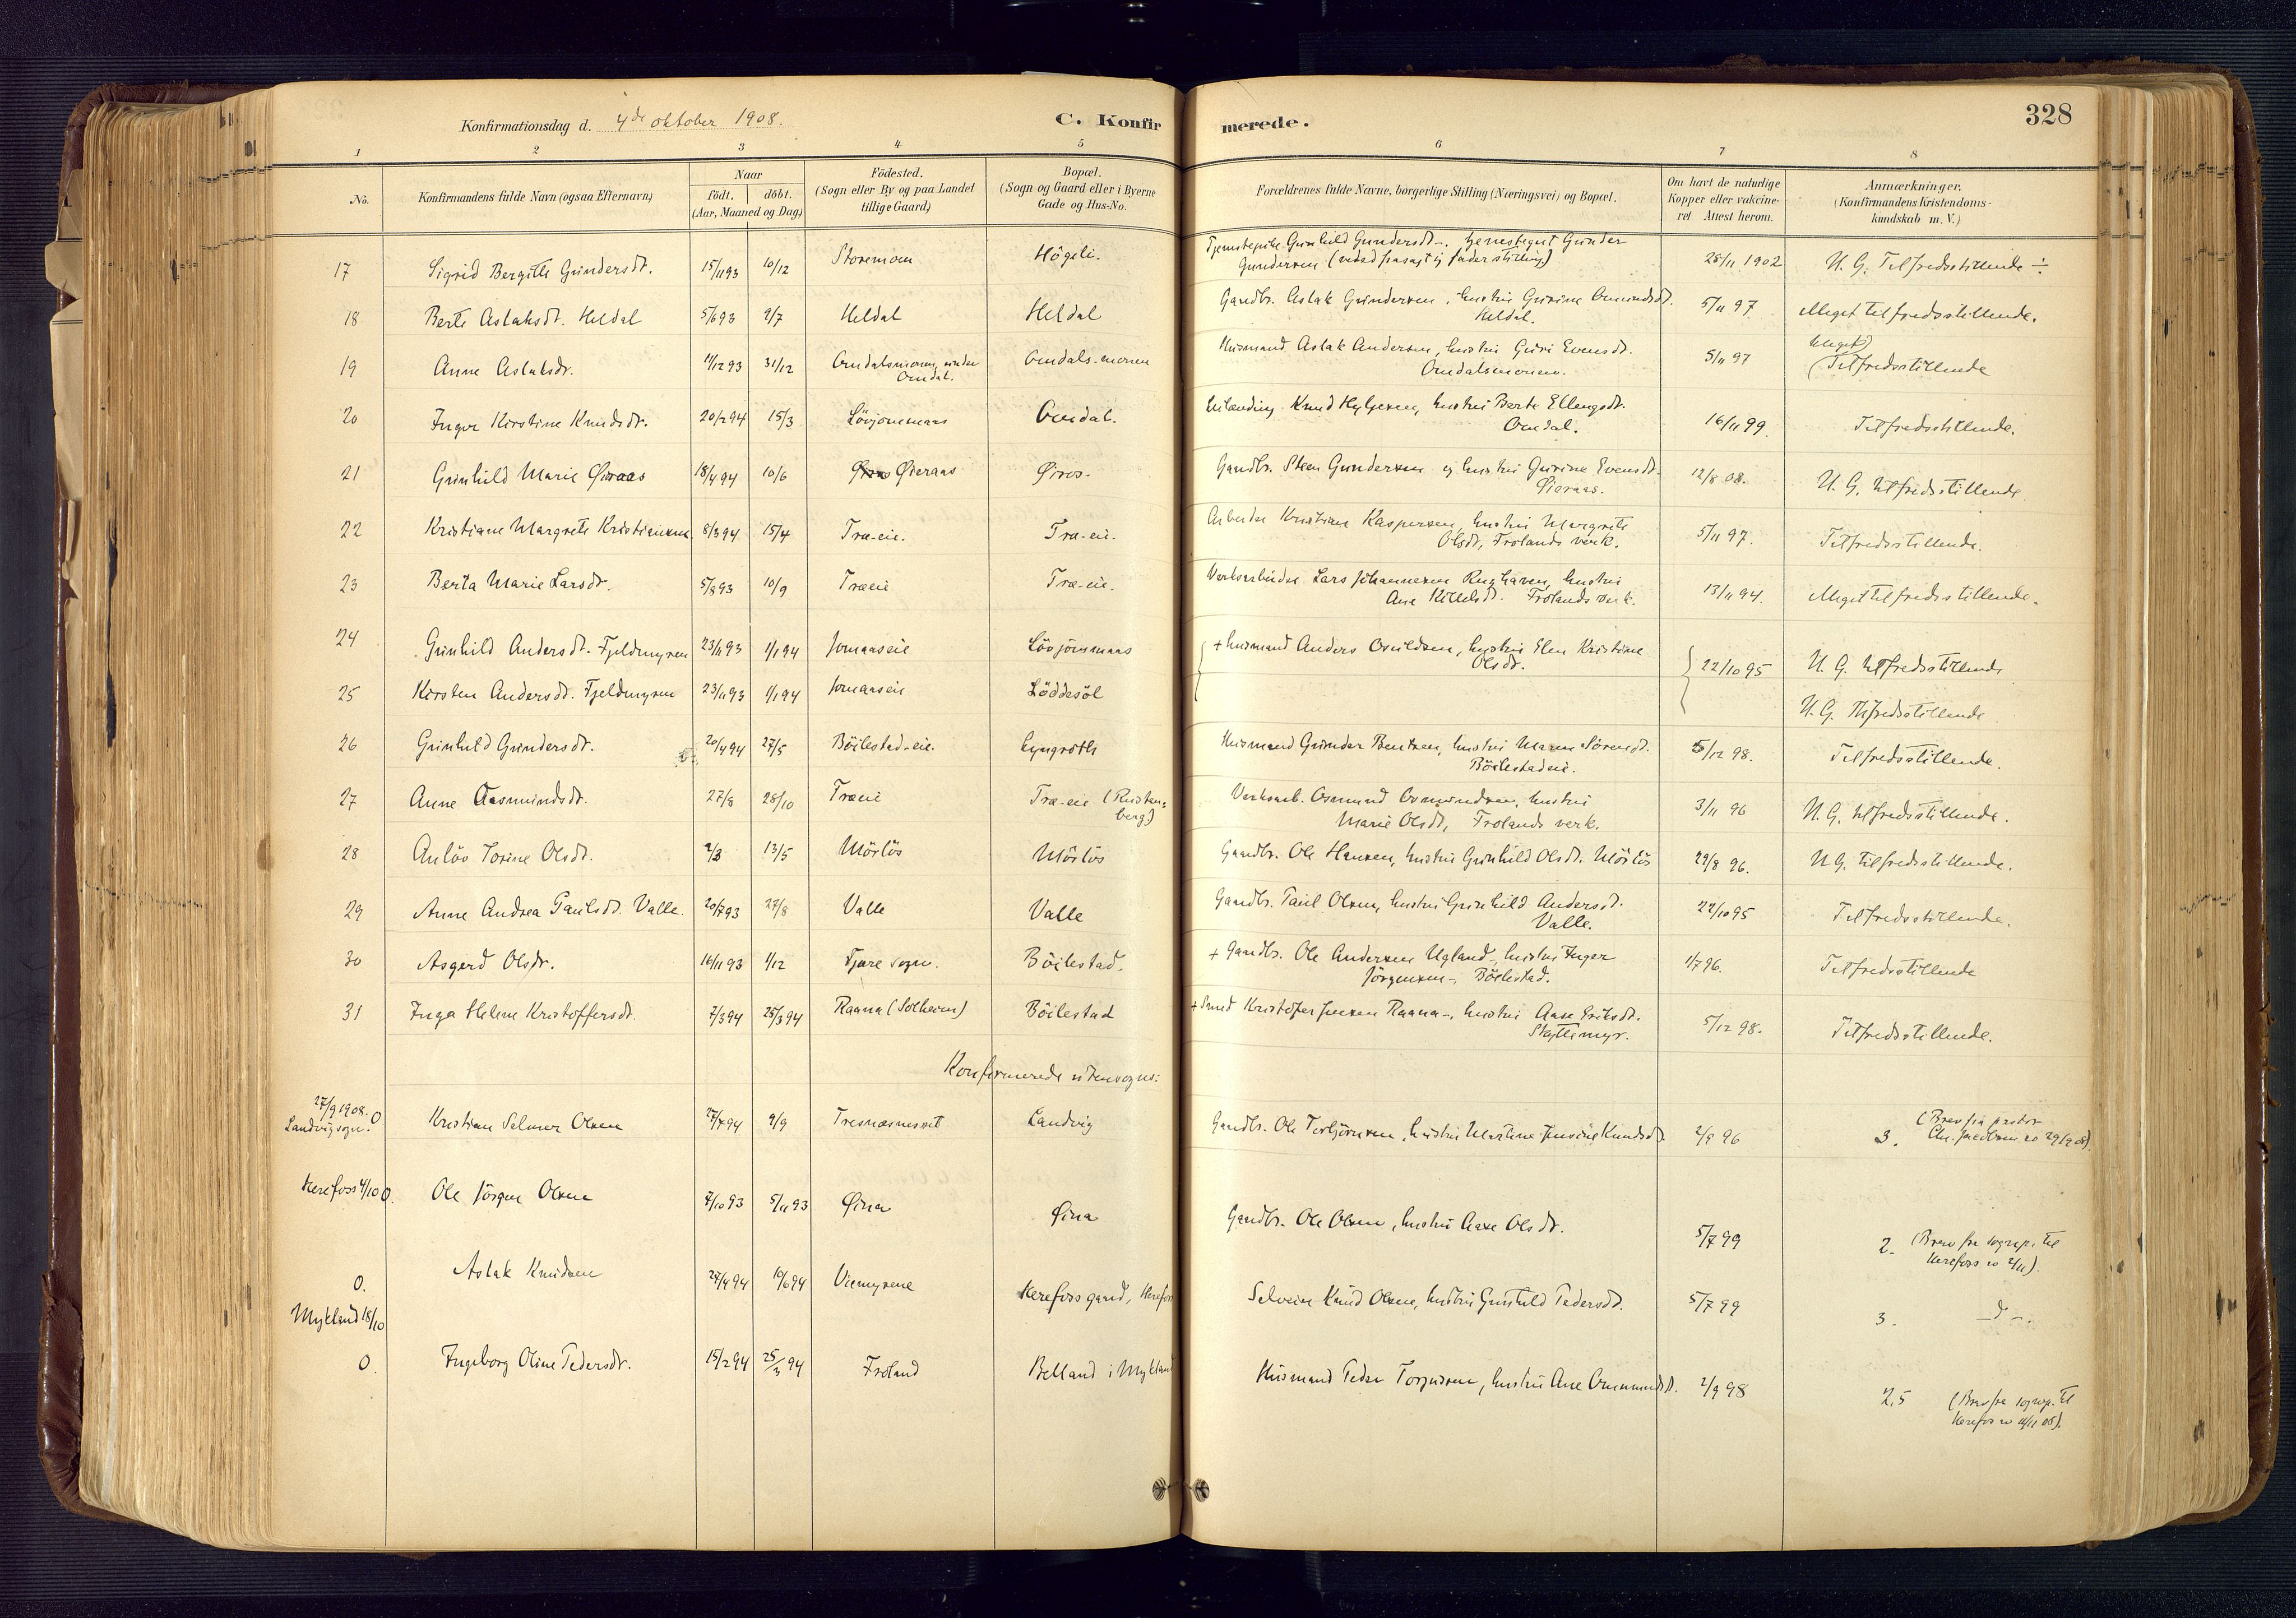 Konfirmationsdag d. 4de oktober 1908.
C. Konfirmerede.
328
1 2 3 4 5 6 7 8
No.
Konfirmandens fulde Navn (ogsaa Efternavn)
Naar
födt. döbt.
(Aar, Maaned og Dag)
Födested.
(Sogn eller By og paa Landet
tillige Gaard)
Bopæl.
(Sogn og Gaard eller i Byerne
Gade og Hus-No.
Forældrenes fulde Navne, borgerlige Stilling (Næringsvei) og Bopæl.
Om havt de naturlige
Kopper eller vakcine-
ret Attest herom.
Anmærkninger.
(Konfirmandens Kristendoms-
kundskab m. V.)
17 Sigrid Bergitte Gundersdt. 15/11 93 10/12 Storemoen Högeli. Tjenestepike Gunhild Gundersdt-. Gunder
Gundersen 25/11 1902 U. G. Tilfredsstillende ÷
18 Berte Aslaksdt. Heldal 5/6 93 9/7 Heldal Heldal Gaardbr. Aslak Gundersen, hustru Gurine Omundsdt.
Heldal. 5/11 97 Meget tilfredsstillende.
19 Anne Aslaksdr. 11/12 93 31/12 Omdalsmoen, under
Omdal. Omdals-monen Husmand Aslak Andersen, hustru Guri Evensdt.
Omdalsmonen. 5/11 97 Meget
(Tilfredsstillende
20 Inger Kirstine Knudsdr. 20/2 94 15/3 Lövjommaas Omdal. Knud Hylgesen, hustru Berte Ellingsdt.
Omdal. 16/11 99. Tilfredsstillende.
21 Gunhild Marie Øiraas 18/4 94 10/6 Øieraas Øiros- Gaardbr. Steen Gundersen og hustru Gurine Evensdt-
Øieraas. 12/8 08. U. G. tilfredsstillende
22 Kristiane Margrete Kristiansen 8/3 94 15/4 Træ-eie. Træ-eie. Arbeider Kristian Kaspersen, hustru Margrete
Olsdt, Frolands verk. 5/11 97. Tilfredsstillende.
23 Berta Marie Larsdr. 5/8 93 10/9 Træeie Træ-eie. Verksarbeider Lars Johannesen Rughaven, hustru
Ane Kittelsdt. Frolands verk. 13/11 94. Meget tilfredsstillende.
24 Gunhild Andersdt. Fjeldmyren 23/11 93 1/1 94 Jomaaseie Lövjommaas + husmand Anders Osuldsen, hustru Elen Kristine
Olsdt. 22/10 95 U. G. tilfredsstillende
25 Kirsten Andersdt. Fjeldmyren 23/11 93 1/1 94 Jomaaseie Löddesöl U. G. Tilfredsstillende
26 Gunhild Gundersdt. 20/4 94 27/5 Böilestad-eie. Lyngroth Husmand Gunder Bentsen, hustru Maren Sörensdt.
Böilestadeie. 5/12 98. Tilfredsstillende.
27 Anne Aasmundsdt. 27/8 28/10 Træeie Træ-eie (Rusten-
berg) Verksarb. Osmund Osmundsen, hustru
Marie Olsdt, Frolands verk. 3/11 96 U. G. tilfredsstillende.
28 Anlöv Torine Olsdt. 2/3 13/5 Mörlös Mörlös Gaardbr. Ole Hansen, hustru Gunhild Olsdt. Mörlös 29/8 96. U G. tilfredsstillende.
29 Anne Andrea Paulsdt. Valle. 20/7 93 27/8 Valle Valle Gaardbr. Paul Olsen, hustru Gunhild Andersdt.
Valle. 22/10 95 Tilfredsstillende.
30 Asgerd Olsdr. 16/11 93 1/12 Fjære sogn. Böilestad. + Gaardbr. Ole Andersen Ugland-, hustru Inger
Jörgensen-, Böilestad. 1/7 96. Tilfredsstillende
31 Inga Helene Kristoffersdt. 7/3 94 25/3 94 Raana (Solheim) Böilestad + Smed Kristofer Jensen Raana-, hustru Aase Eriksdt.
Skyttemyr. 5/12 98. Tilfredsstillende.
Konfirmerede utensogns:
27/9 1908.
Landvigsogn. 0 Kristian Selmer Olsen 27/7 94 9/9 Tresnæsneset Landvig Gaardbr. Ole Torbjörnsen, hustru Martine Jensine Knudsdt 2/9 96 3. (Brev fra pastor
Chr. Jacobsen 29/9 08).
Herefoss 4/10 0. Ole Jörgen Olsen 7/10 93 5/11 93 Øina Øina Gaardbr. Ole Olsen, hustru Aase Olsdr. 5/7 99 2. (Brev fra sognepr. til
Herefoss 2/11)
0. Aslak Knudsen 27/4 94 10/6 94 Viemyrene Herefossgaard, Herefos Selveier Knud Olsen, hustru Gunhild Pedersdt. 5/7 99 3. -d-.
Mykland 18/10
0. Ingeborg Oline Pedersdr. 15/2 94 25/3 94 Froland Belland i Mykland Husmand Peder Torjusen, hustru Ane Omundsdt. 2/9 98 2,5 (Brev fra sognepr. til
Herefos 11/11 08).